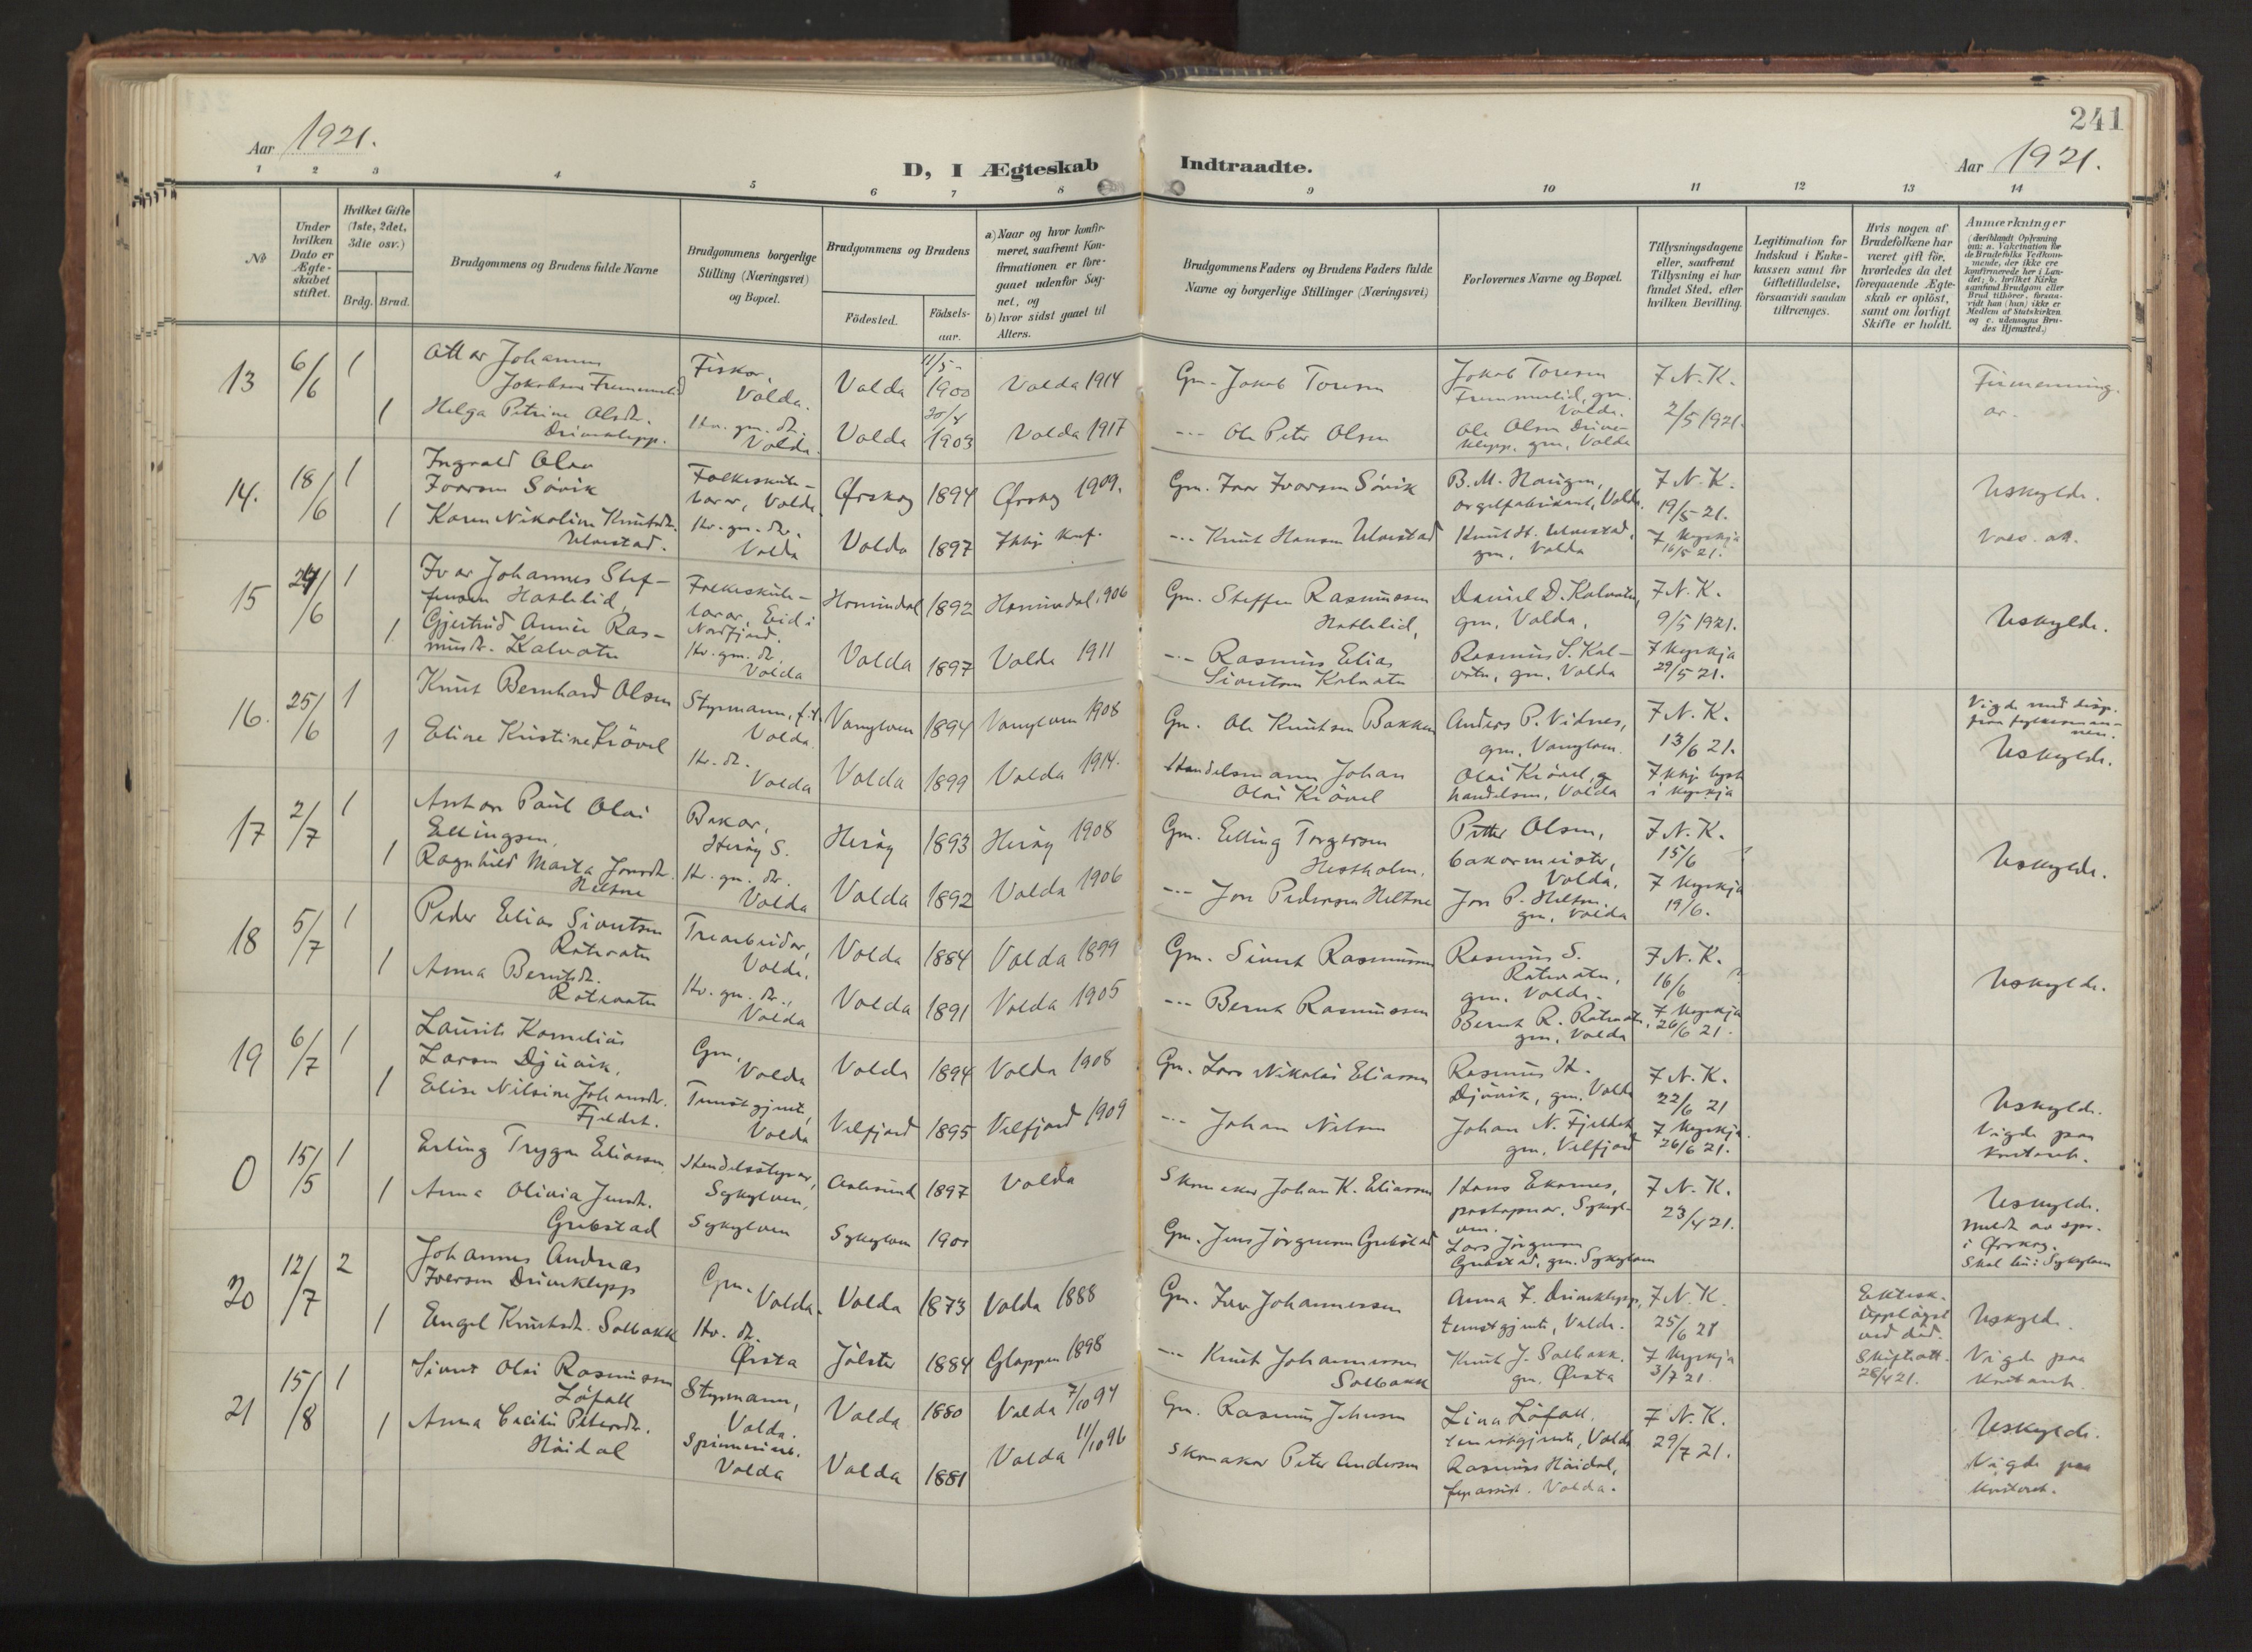 241
Aar 1921.
D, I Ægteskab Indtraadte.
Aar 1921.
1 2 3 4 5 6 7 8 9 10 11 12 13 14
No
Under hvilken Dato er Ægteskabet stiftet.
Hvilket Gifte (1ste, 2det, 3die osv.)
Brdg. Brud.
Brudgommens og Brudens fulde Navne
Brudgommens borgerlige Stilling (Næringsvei) og Bopæl.
Brudgommens og Brudens
Fødested.
Fødselsaar.
a) Naar og hvor konfirmeret, saafremt Konfirmationen er foregaaet udenfor Sognet, og
b) hvor sidst gaaet til Alters.
Brudgommens Faders og Brudens Faders fulde Navne og borgerlige Stillinger (Næringsvei)
Forlovernes Navne og Bopæl.
Tillysningsdagene eller, saafremt Tillysning ei har fundet Sted, efter hvilken Bevilling.
Legitimation for Indskud i Enkekassen samt for Giftetilladelse, forsaavidt saadan tiltrænges.
Hvis nogen af Brudefolkene har været gift før, hvorledes da det foregaaende Ægteskab er opløst, samt om lovligt Skifte er holdt.
Anmærkninger
(deriblandt Oplysning om: a. Vakcination for de Brudefolks Vedkommende, der ikke ere konfirmerede her i Landet; b. hvilket Kirkesamfund Brudgom eller Brud tilhører, forsaavidt han (hun) ikke er Medlem af Statskirken og c. udensogns Brudes Hjemsted.)
13 6/6 1 Ottar Johannes
Jokobsen Fremmerlid
Fiskar, Volda.
Volda 11/5- 1900 Volda 1914
Gm. Jakob Toresen
Jokob Toresen
Fremmerlid, gm. Volda.
7 N. K.
2/5 1921.
Firmenning.
ar.
1 Helga Petrine Olsdtr.
Driveklepp.
Hv. gm. dtr. Volda.
Volda 1903 Volda 1917
--- Ole Peter Olsen
Ole Olsen Driveklepp, gm, Volda
14. 18/6 1 Ingvald Olav
Ivarsen Søvik
Folkeskulelærar, Volda.
Ørskog 1894 Ørskog 1909.
Gm. Ivar Ivarsen Søvik
B. M. Haugen,
orgelfabrikant, Volda.
7 N. K.
19/5 21.
Uskylde.
1 Karen Nikoline Knutsdtr.
Ulvestad.
Hv. gm. dtr. Volda
Volda 1897 Ikkje knf.
--- Knut Hansen Ulvestad
Knut H. Ulvestad,
gm, Volda
7 kyrkja
16/5 21.
15 24/6 1 Ivar Johannes Steffensen Hatlelid,
Folkeskulelærar, Eid i Nordfjord.
Hornindal 1892 Hornindal 1906
Gm. Steffen Rasmussen
Hatlelid,
Daniel D. Kalvatn,
gm, Volda,
7 N. K.
9/5 1921.
Uskylde.
1 Gjertrud Annie Rasmusdtr. Kalvatn
Hv. gm. dtr. Volda
Volda 1897 Volda 1911
--- Rasmus Elias
Sivertsen Kalvatn
Rasmus S. Kalvatn, gm. Volda
7 kyrkja
29/5 21.
16. 25/6 1 Knut Bernhard Olsen
Styrmann, f. t. Volda.
Vanylven 1894 Vanylven 1908
Gm. Ole Knutsen Bakken
Anders P. Vidnes,
gm, Vanylven.
7 N. K.
13/6 21.
Vigde med disp.
fraa fylkesmannen.
Uskylde.
1 Eline Kristine Krøvel
Hv. dtr. Volda
Volda 1899 Volda 1914.
Handelsmann Johan
Olai Krøvel
Olai Krøvel, g
handelsm, Volda
7 kkje lyst
i kyrkja
17 2/7 1 Anton Paul Olai
Ellingsen,
Bakar, Herøy S.
Herøy 1893 Herøy 1908
Gm. Elling Torgersen
Hestholm.
Petter Olsen,
bakarmeister, Volda,
7 N. K.
15/6
Uskylde.
1 Ragnhild Marta Jonsdtr.
Heltne
Hv. gm. dtr. Volda
Volda 1892 Volda 1906
--- Jon Pedersen Heltne
Jon P. Heltne.
gm, Volda
7 kyrkja
19/6.
18 5/7 1 Peder Elias Sivertsen
Rotevatn
Trearbeidar, Volda,
Volda 1884 Volda 1899
Gm. Sivert Rasmussen
Rasmus S.
Rotevatn,
gm. Volda.
7 N. K.
16/6
Uskylde.
1 Anna Berntsdtr.
Rotevatn
Hv. gm. dtr., Volda
Volda 1891 Volda 1905
--- Bernt Rasmussen
Bernt R. Rotevatn,
gm, Volda
7 kyrkja
26/6 21.
19 6/7 1 Laurits Kornelius
Larsen Djuvik,
Gm, Volda
Volda 1894 Volda 1908
Gm. Lars Nikolai Eliassen
Rasmus K.
Djuvik, gm. Volda
7 N. K.
22/6 21
Uskylde.
Vigde paa
kontoret.
1 Elise Nilsine Johansdtr.
Fjeldet.
Tenestgjente, Volda
Velfjord 1895 Velfjord 1909
--- Johan Nilsen
Johan N. Fjeldet
gm, Velfjord
7 kyrkja
26/6 21.
0 15/5 1 Erling Trygve Eliassen
Handelsstyrar, Sykylven,
Aalesund 1897 Volda
Skomaker Johan K. Eliassen
Hans Ekornes,
postopnar, Sykylven.
7 N. K.
23/4 21.
Uskylde.
meldt av spr.
i Ørskog.
Skal bu i Sykylven
1 Anna Olivia Jensdtr.
Grebstad
Sykylven
Sykylven 1900
Gm. Jens Jørgensen Grebstad
Lars Jørgensen
Grebstad, gm. Sykylven
20 12/7 2 Johannes Andreas
Iversen Driveklepp
Gm. Volda.
Volda 1873 Volda 1888
Gm. Iver Johannessen
Anna I. Driveklepp,
tenestgjente, Volda.
7 N. K.
25/6 21
Ektesk.
uppløyst
ved død.
Skifteatt.
28/4 21.
Uskylde.
Vigde paa
kontoret.
1 Engel Knutsdtr. Solbakk
Hv. dtr. Ørsta
Jølster 1884 Gloppen 1898
--- Knut Johannessen
Solbakk
Knut J. Solbakk.
gm. Ørsta
7 kyrkja
3/7 21.
21 15/8 1 Sivert Olai Rasmussen
Løfoll
Styrmann, Volda.
Volda 1880 Volda 7/10 94
Gm. Rasmus Johnsen
Lina Løfoll.
tenestgjente, Volda
7 N. K.
29/7 21.
Uskylde.
Vigde paa
kontoret.
1 Anna Cecilie Petersdtr.
Høidal
Spinneriarb. Volda
Volda 1881 Volda 11/10 96
Skomakar Peter Andersen
Rasmus Høidal,
Volda.